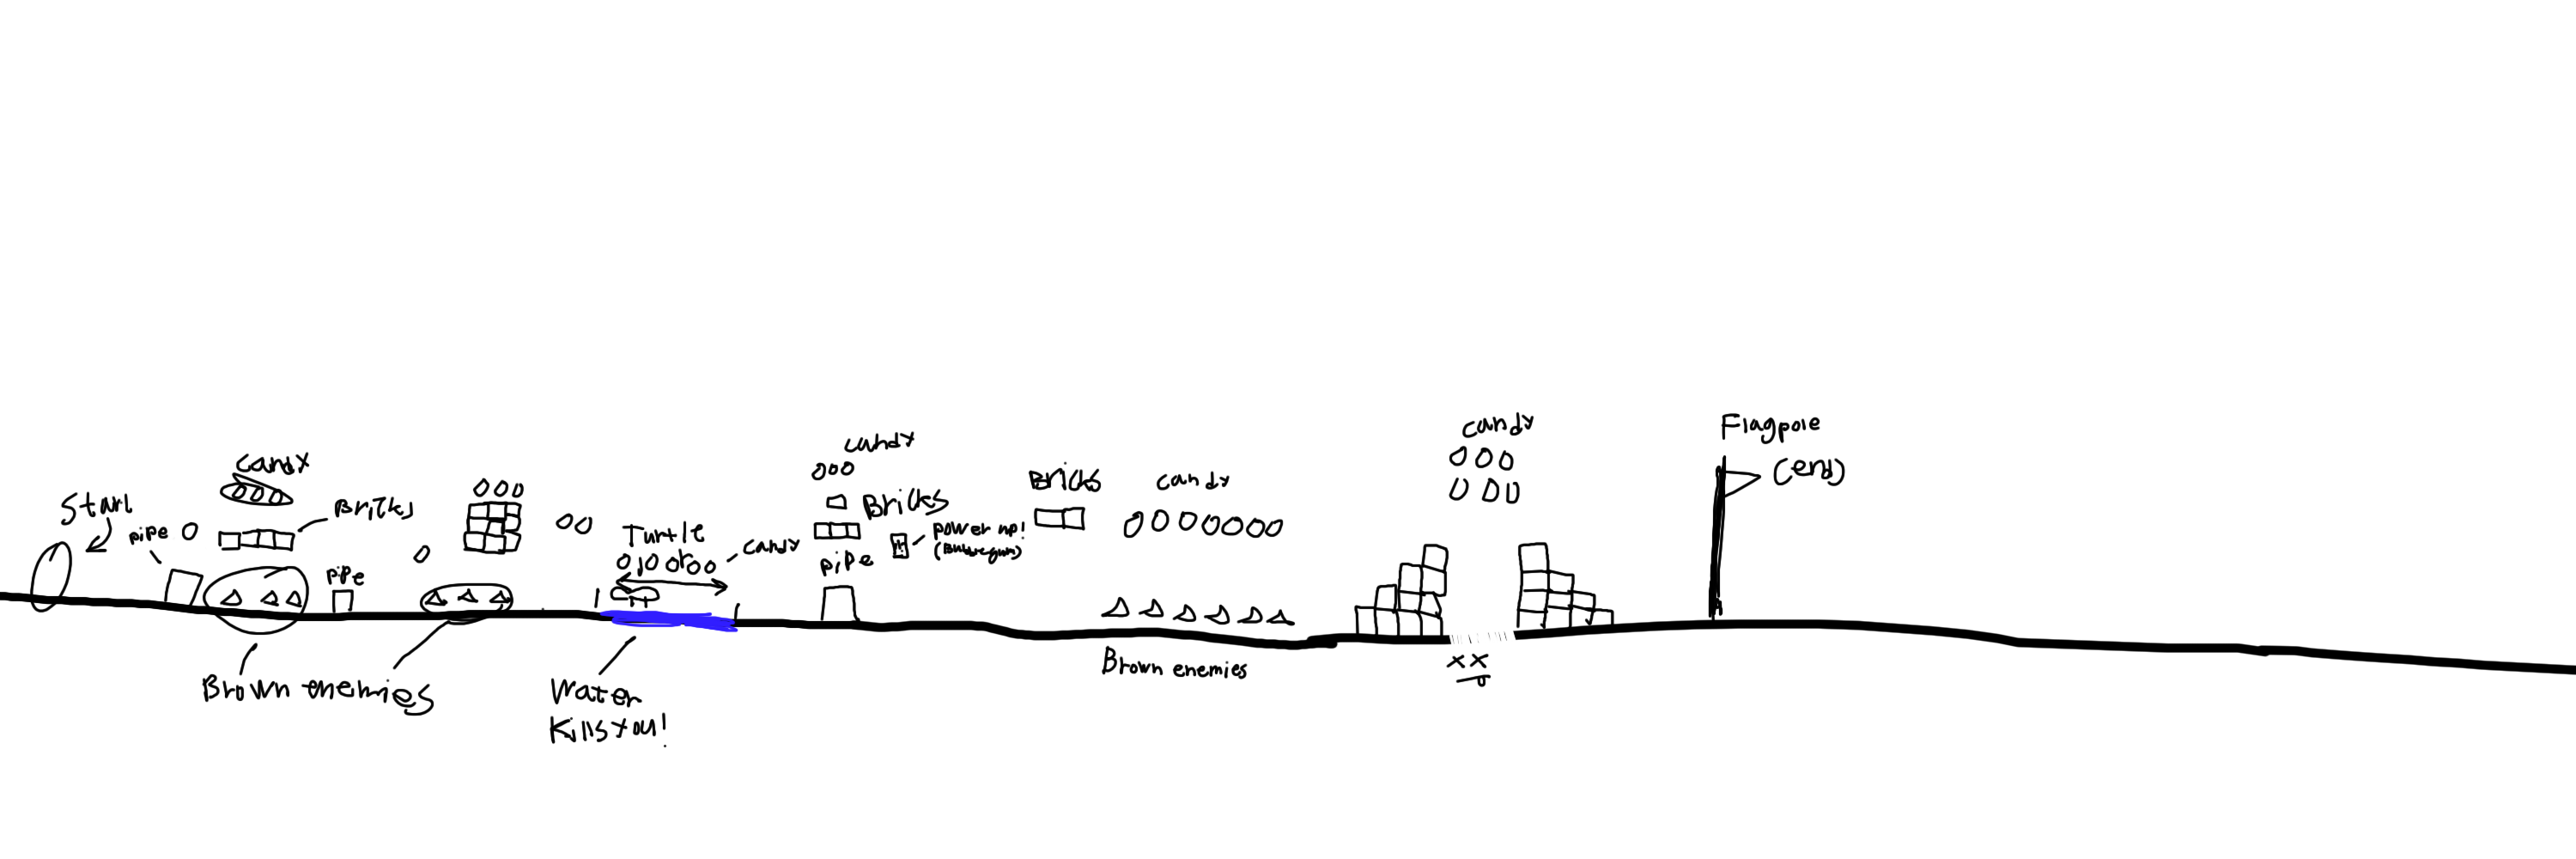 Start
pipe
candy
Bricks
pipe
Brown enemies
Turtle
candy
Water
Kills you!
candy
Bricks
power up!
(Bubblegum)
pipe
Bricks
candy
Brown enemies
candy
xx
Flagpole
(end)